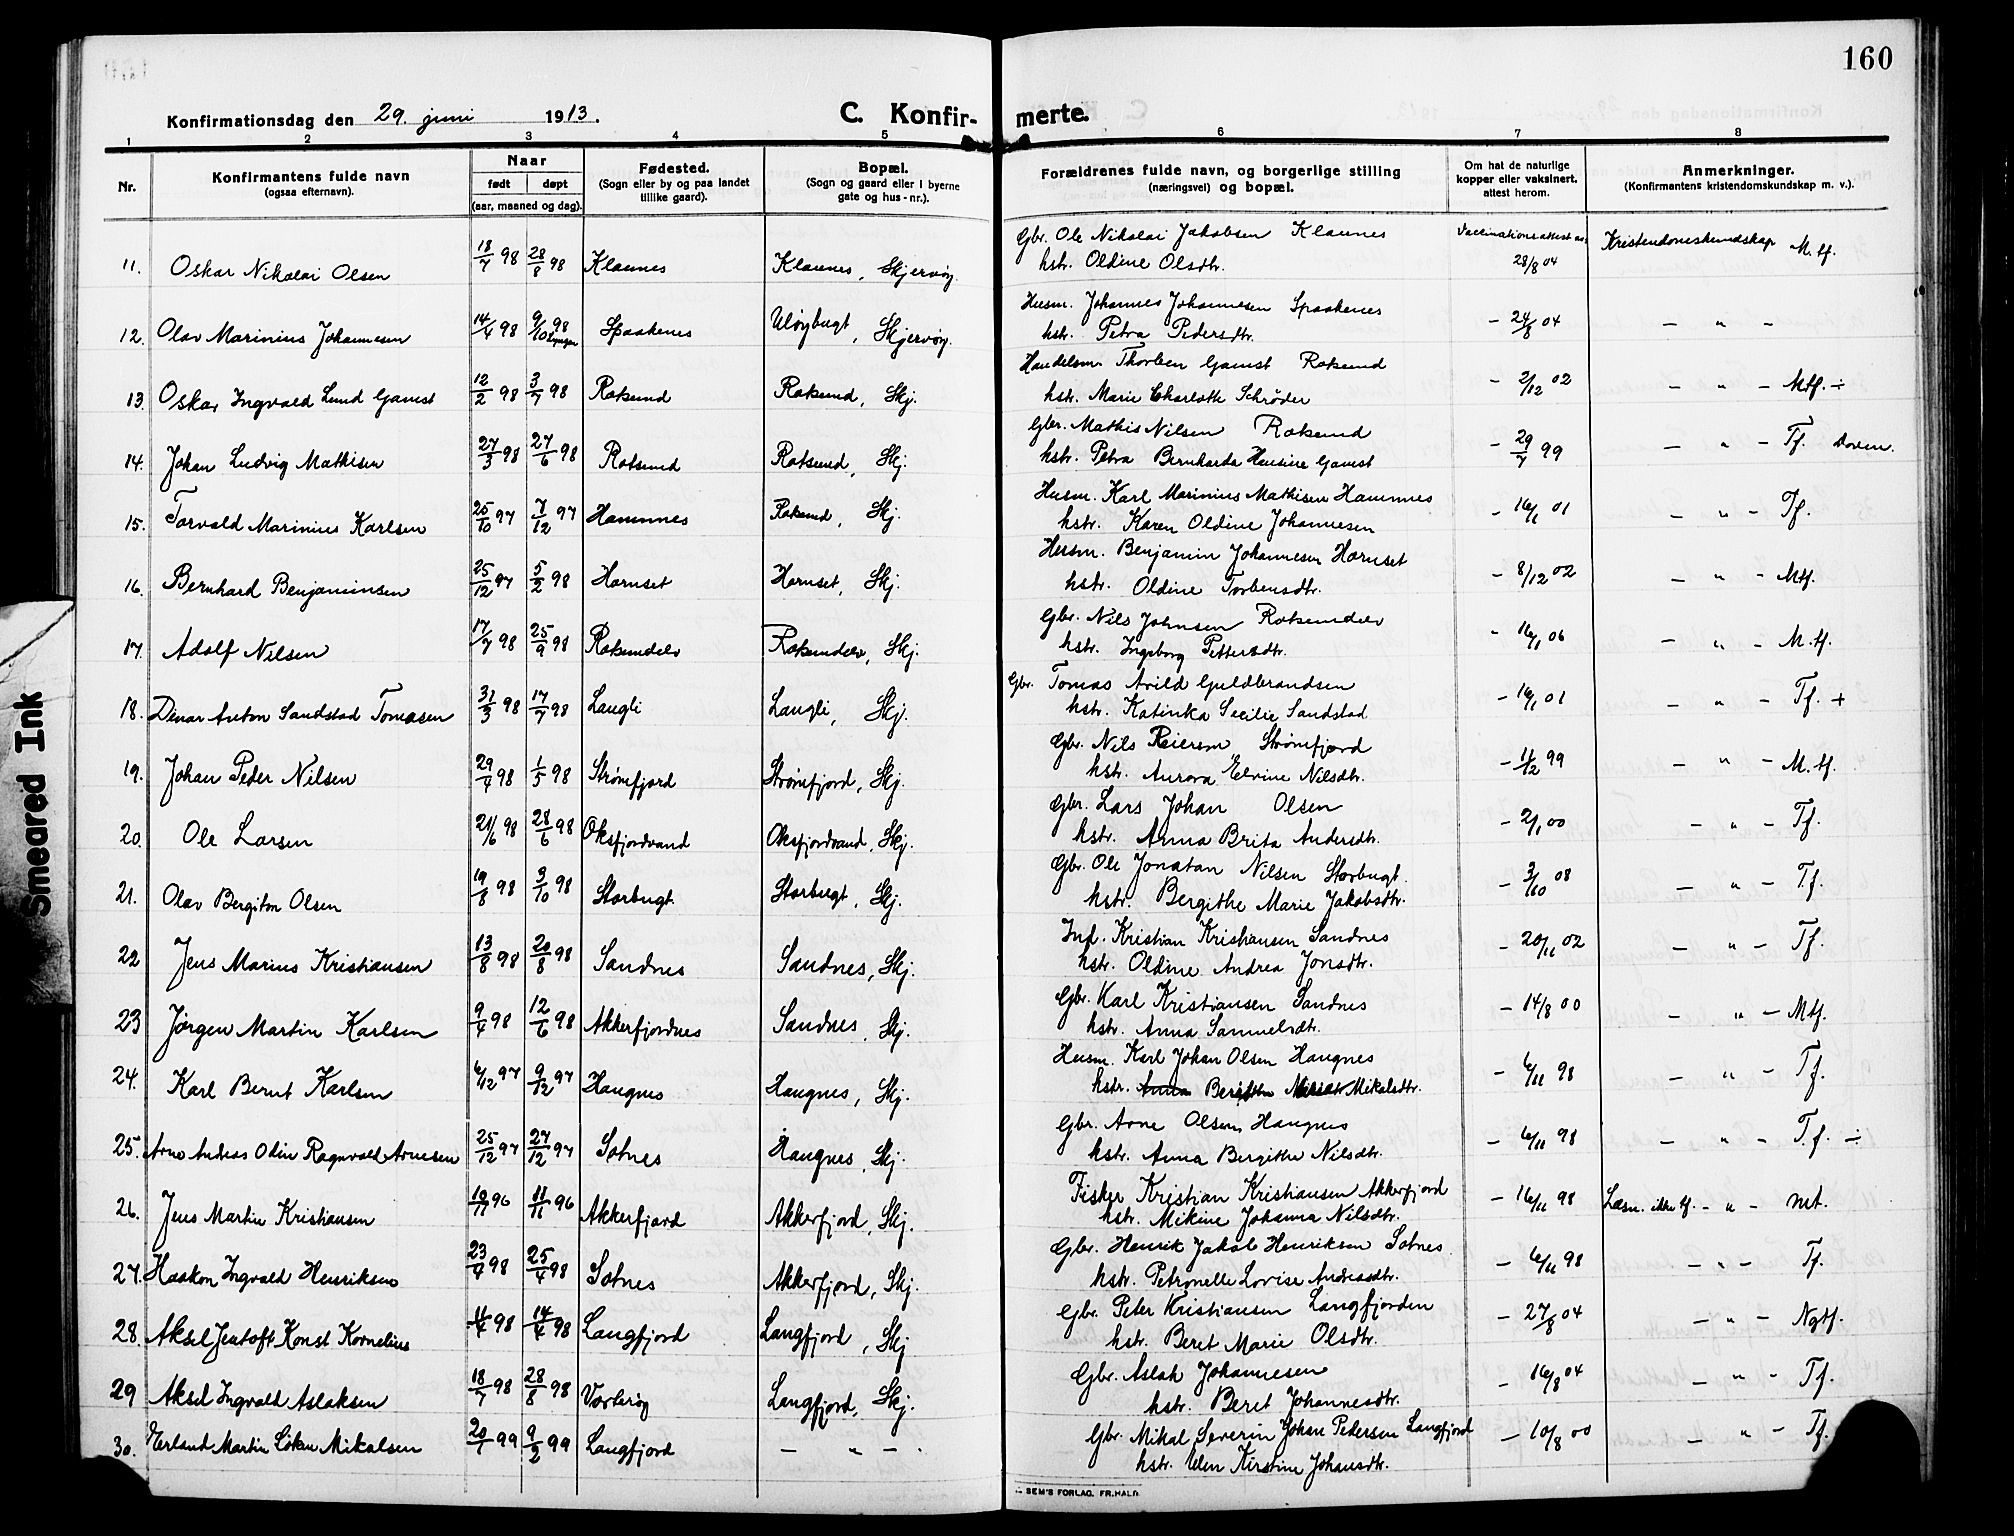 160
Konfirmationsdag den 29. juni 1913.
C. Konfir- merte.
1 2 3 4 5 6 7 8
Nr.
Konfirmantens fulde navn
(ogsaa efternavn).
Naar
født døpt
(aar, maaned og dag).
Fødested.
(Sogn eller by og paa landet
tillike gaard).
Bopæl.
(Sogn og gaard eller i byerne
gate og hus-nr.).
Forældrenes fulde navn, og borgerlige stilling
(næringsvei) og bopæl.
Om hat de naturlige
kopper eller vaksinert,
attest herom.
Anmerkninger.
(Konfirmantens kristendomskundskap m. v.).
Gbr. Ole Nikolai Jakobsen Klaunes
11. Oskar Nikolai Olsen 18/7 98 28/8 98 Klaunes Klaunes, Skjervøy. hstr. Oldine Olsdtr. Vaccinationsattest av 28/8 04 Kristendomskundskap M. tf.
Husm. Johannes Johannesen Spaakenes
12. Olav Marinius Johannesen 14/4 98 9/10 98 Lyngen Spaakenes Uløybugt, Skjervøy. hstr. Petra Pedersdtr. - 24/8 04 - " -
Handelsm. Thorleen Gamst Rotsund
13. Oskar Ingvald Lund Gamst 12/2 98 3/7 98 Rotsund Rotsund, Skj. hstr. Marie Charlotte Schrøder - 2/12 02 - " - Mtf. ÷
Gbr. Mathis Nilsen Rotsund
14. Johan Ludvig Mathisen 27/3 98 27/6 98 Rotsund Rotsund, Skj. hstr. Petra Bernharda Hensine Gamst - 29/7 99 - " - Tf. doven.
Husm. Karl Marinius Mathisen Hamnes
15. Torvald Marinius Karlsen 25/10 97 7/12 97 Hamnes Rotsund, Skj. hstr. Karen Oldine Johannesen - 16/1 01 - " - Tf.
Husm. Benjamin Johannesen Havnset
16. Bernhard Benjaminsen 25/12 97 5/2 98 Havnset Havnset, Skj. hstr. Oldine Torbensdtr. - 8/12 02 - " - Mtf.
Gbr. Nils Johnsen Rotsundelv
17. Adolf Nilsen 17/7 98 25/9 98 Rotsundelv Rotsundelv, Skj. hstr. Ingeborg Pettersdtr. - 16/1 06 - " - M. tf.
Gbr. Tomas Arild Guldbrandsen
18. Einar Anton Sandstad Tomasen 31/3 98 17/7 98 Langli Langli, Skj. hstr. Katinka Secilie Sandstad - 16/1 01 - " - Tf. +
Gbr. Nils Reiersen Strømfjord
19. Johan Peder Nilsen 29/4 98 1/5 98 Strømfjord Strømfjord, Skj. hstr. Aurora Elvine Nilsdtr. - 11/2 99 - " - M. tf.
Gbr. Lars Johan Olsen
20. Ole Larsen 21/6 98 28/6 98 Oksfjordvand Oksfjordvand, Skj. hstr. Anna Brita Andersdtr. - 2/1 00 - " - Tf.
Gbr. Ole Jonatan Nilsen Storbugt.
21. Olav Bergiton Olsen 19/8 98 3/10 98 Storbugt. Storbugt, Skj. hstr. Bergithe Marie Jakobsdtr. - 3/10 08 - " - T.f.
Inf. Kristian Kristiansen Sandnes
22 Jens Marius Kristiansen 13/8 98 20/8 98 Sandnes Sandnes, Skj. hstr. Oldine Andrea Jonsdtr. - 20/11 02 - " - Tf.
Gbr. Karl Kristiansen Sandnes
23 Jørgen Martin Karlsen 9/4 98 12/6 98 Akkerfjordnes Sandnes, Skj. hstr. Anna Samuelsdtr. - 14/8 00 - " - Mtf.
Husm. Karl Johan Olsen Haugnes
24. Karl Bernt Karlsen 6/12 97 9/12 97 Haugnes Haugnes, Skj. hstr. Mikalsdtr. - 6/11 98 - " - Tf.
Gbr. Arne Olsen, Haugnes
25. Arne Andreas Olin Ragnvald Arnesen 25/12 97 27/12 97 Sotnes Haugnes, Skj. hstr. Anna Bergithe Nilsdtr. - 6/11 98 - " - T. f. ÷
Fisker Kristian Kristiansen Akkerfjord
26. Jens Martin Kristiansen 96 11/11 96 Akkerfjord Akkerfjord, Skj. hstr. Mikine Johanna Nilsdtr. - 16/11 98 Læsn. ikke tf. - " - net.
Gbr. Henrik Jakob Henriksen Sotnes.
27. Haakon Ingvald Henriksen 23/4 98 25/4 98 Sotnes Akkerfjord, Skj. hstr. Petronelle Lovise Andreasdtr. - 6/11 98 - " - Tf.
Gbr. Peter Kristiansen Langfjorden
28. Aksel Jentoft Konst Kornelius 11/4 98 14/4 98 Langfjord Langfjord, Skj hstr. Beret Marie Olsdtr. - 27/8 04 - " - Ngtf.
Gbr. Aslak Johannesen
29 Aksel Ingvald Aslaksen 18/7 98 28/8 98 Vorterøy Langfjord, Skj. hstr. Beret Johannesdtr. - 16/8 04 - " - Tf.
Gbr. Mikal Severin Johan Pedersen Langfjord
30. Erland Martin Løken Mikalsen 20/1 99 9/2 99 Langfjord - " - . hstr. Elen Kirstine Johansdtr. - 10/8 00 - " - Tf.
SEM'S FORLAG, FR.HALD.
Smeared Ink